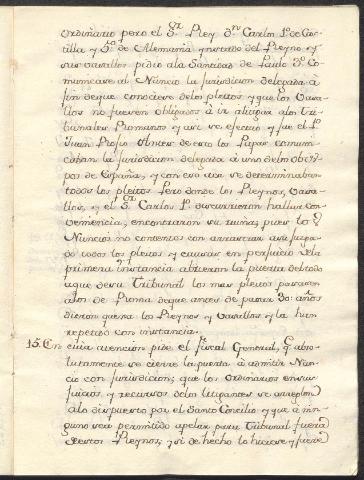 ordinario pero el S.r Rey D.n Carlos 1.º de Cas-
tilla y 5.º de Alemania ynstado del Reyno, y
sus vasallos pidio ala Santidad de Paulo 3.º co-
municase al Nuncio la jurisdicion delegada à
fin de que conociese delos pleitos y que los vasa-
llos no fuesen obligados à ir aligar alos tri-
bunales Romanos y asi se efectuò y fue el 1.º
Juan Antes de esto los Papas comuni-
caban la jurisdicion delegada à uno delos obis-
pos de España, y con esto aun se determinaban
todos los pleitos Pero donde los Reynos, vasa-
llos, y el S.or Carlos 1.º discurrieron hallar con-
veniencia, encontraron su ruina; pues los
Nuncios no contentos con arrastrar a su juzga-
do todos los pleitos y causas en perjuicio dela
primera instancia abrieron la puerta del todo
a que de su Tribunal los mas pleitos pasasen
alos de Roma de que antes de pasar 30. años
dieron quexa los Reynos y vasallos y la han
repetido con instancia.
15. En cuia atencion pide el Fiscal General, q.e abso-
lutamente se cierre la puerta à admitir Nun-
cio con jurisdicion; que los ordinarios en sus
juicios, y recursos delos litigantes se arreglen
alo dispuesto por el Santo Concilio y que à nin-
guno sea permitido apelar para Tribunal fuera
de estos Reynos; y si de hecho lo hiciese y fuere